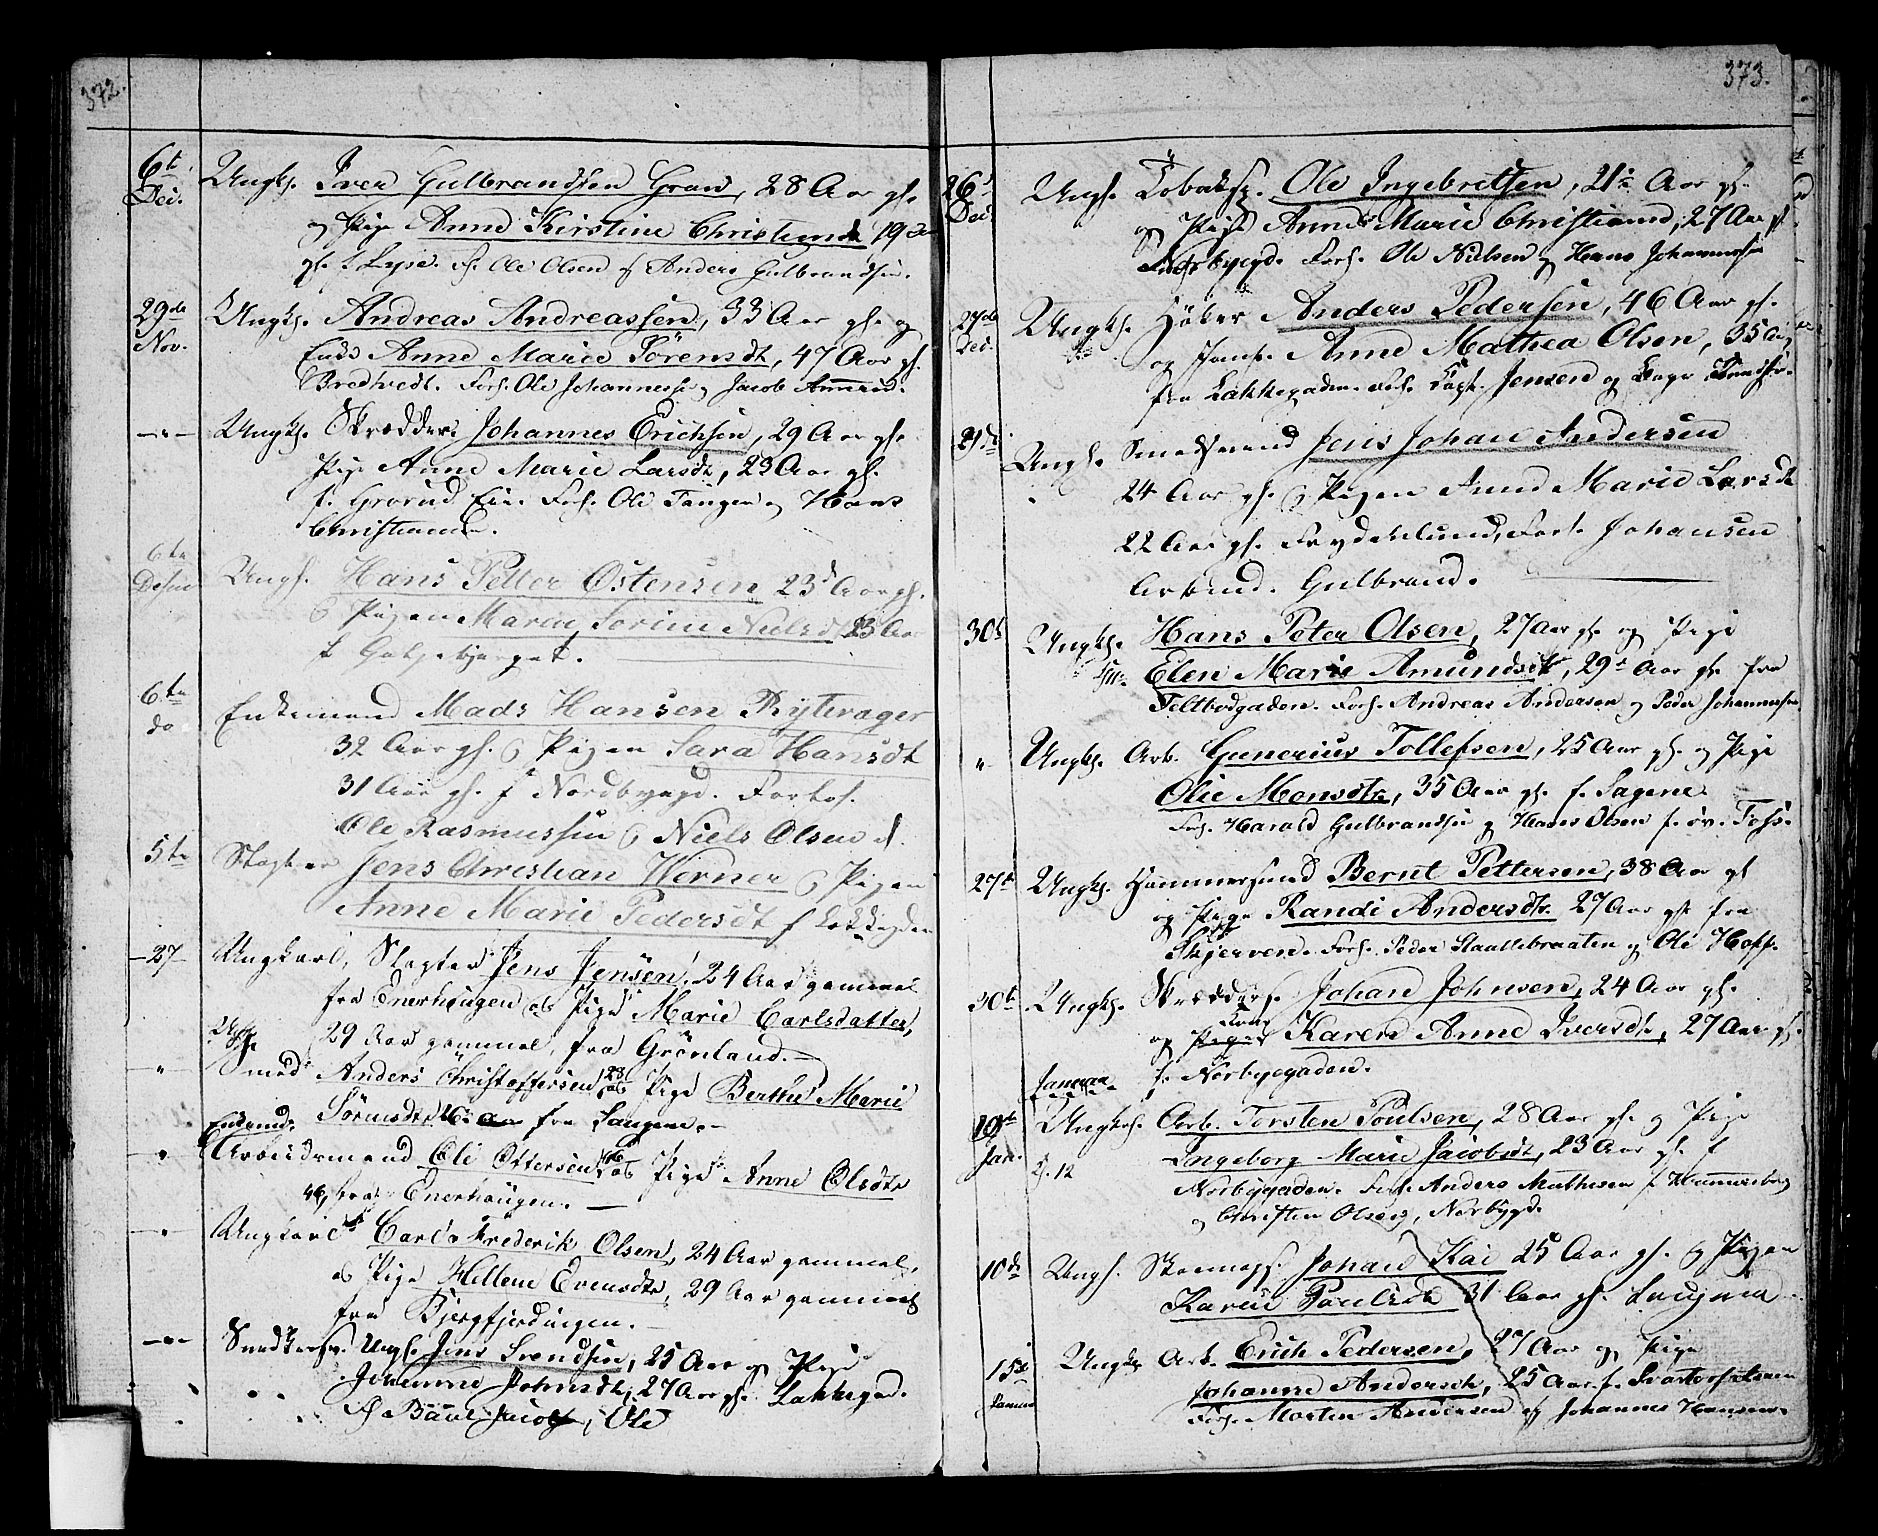 372.
6te Dec. Ungk. Iver Gulbrandsen Gran, 28 Aar gl.
og Pige Anne Kirstine Christiansd. 19
gl. f. Ole Olsen og Anders Gulbrandsen.
29de Nov. Ungk. Andreas Andreassen, 33 Aar gl. og
Enke Anne Marie Sörensdt, 47 Aar gl.
Bredtvedt. Forl. Ole Johannesen og Jacob
Ungk. Skrædder Johannes Erichsen, 29 Aar gl.
Pige Anne Marie Larsdt, 23 Aar gl.
f. Grorud Eie. Forl. Ole Tangen og Hans
Christiansen.
6te Ungk. Hans Petter Östensen 23 Aar gl.
& Pigen Maren Sorine Nielsdt 23 Aar
f.
6te do Enkemand Mads Hansen Rytterager
32 Aar gl. & Pigen Sara Hansdt
31 Aar gl. f. Nordbygd. Forlov.
Ole Rasmussen & Niels Olsen
5te Slagter Jens Christian Werner & Pigen
Anne Marie Pedersdt f. Lakkegden
27 Ungkarl, Slagter Jens Jensen, 24 Aar gammel
fra Enerhougen og Pige Marie Carlsdatter,
29 Aar gammel, fra Grönland.
" Ungk. Smed Anders Christoffersen, 28 og Pige Berthe Marie
Sörensdtr fra Sangene.
" Enkemd. Arbeidsmand Ole Ottersen og Pige Anne Olsdtr
46, fra Enerhougen.
" Ungkarl Carl Frederik Olsen, 24 Aar gammel,
og Pige Hellene Evensdtr, 29 Aar gammel
fra Bjergfjerdingen.
" Snedkersv. Ungk. Jens Svendsen, 25 Aar og Pige
Johanne Johnsdt, 27 Aar gl. Lakkegad.
Fl. Jacob, Ole
373.
26 Dec. Ungk. Tobaksp. Ole Ingebretsen, 21 Aar gl.
og Pige Anne Marie Christiansd, 27 Aar gl.
Norbygd. Forl. Ole Nielsen og Hans Johannesen
27de Dec. Ungk. Höker Anders Pedersen, 46 Aar gl.
og Jomf. Anne Mathea Olsen, 35 Aar
fra Lakkegaden. Forl. Jensen og
Ungk. Smedsvend Jens Johan Andersen
24 Aar gl. & Pigen Anne Marie Larsdt
22 Aar gl. Frydenlund, Forl. Johansen
Gulbrand.
30te Ungk. Hans Peter Olsen, 27 Aar gl. og Pige
Elen Marie Amundsdt, 29 Aar gl. fra
Teltbodgaden. Forl. Andreas Andersen og Peder Johannesen
" Ungk. Arb. Gunerius Tollefsen, 25 Aar gl. og Pige
Olie Monsdtr, 35 Aar gl. f. Sagene.
Forl. Harald Gulbrandsen og Hans Olsen f. öv. Foss.
27de Ungk. Hammersmed Bernt Pettersen, 38 Aar gl
og Pige Randi Andersdtr. 27 Aar gl. fra
Skjerven. Forl. Peder Staallebraaten og Ole Hopp.
30te Ungk. Skrædders. Johan Johnsen, 24 Aar gl.
og Pigen Karen Anne Iversdt, 27 Aar gl.
f. Norbygaden.
Januar
10de Jan. Ungk. Arb. Torsten Poulsen, 28 Aar gl. og Pige
Ingeborg Marie Jacobsdt, 23 Aar gl. f
Norbygaden. Forl. Anders Mathesen f. Hammersborg
og Christen Olsen, Norbygd.
10de Ungk. Skomags. Johan Kai 25 Aar gl. & Pigen
Karen Poulsdt 31 Aar gl.
15de Januar Ungk. Arb. Erich Pedersen, 27 Aar og Pige
Johanne Andersdt, 25 Aar f.
Forl. Morten Andersen og Johannes Hansen.